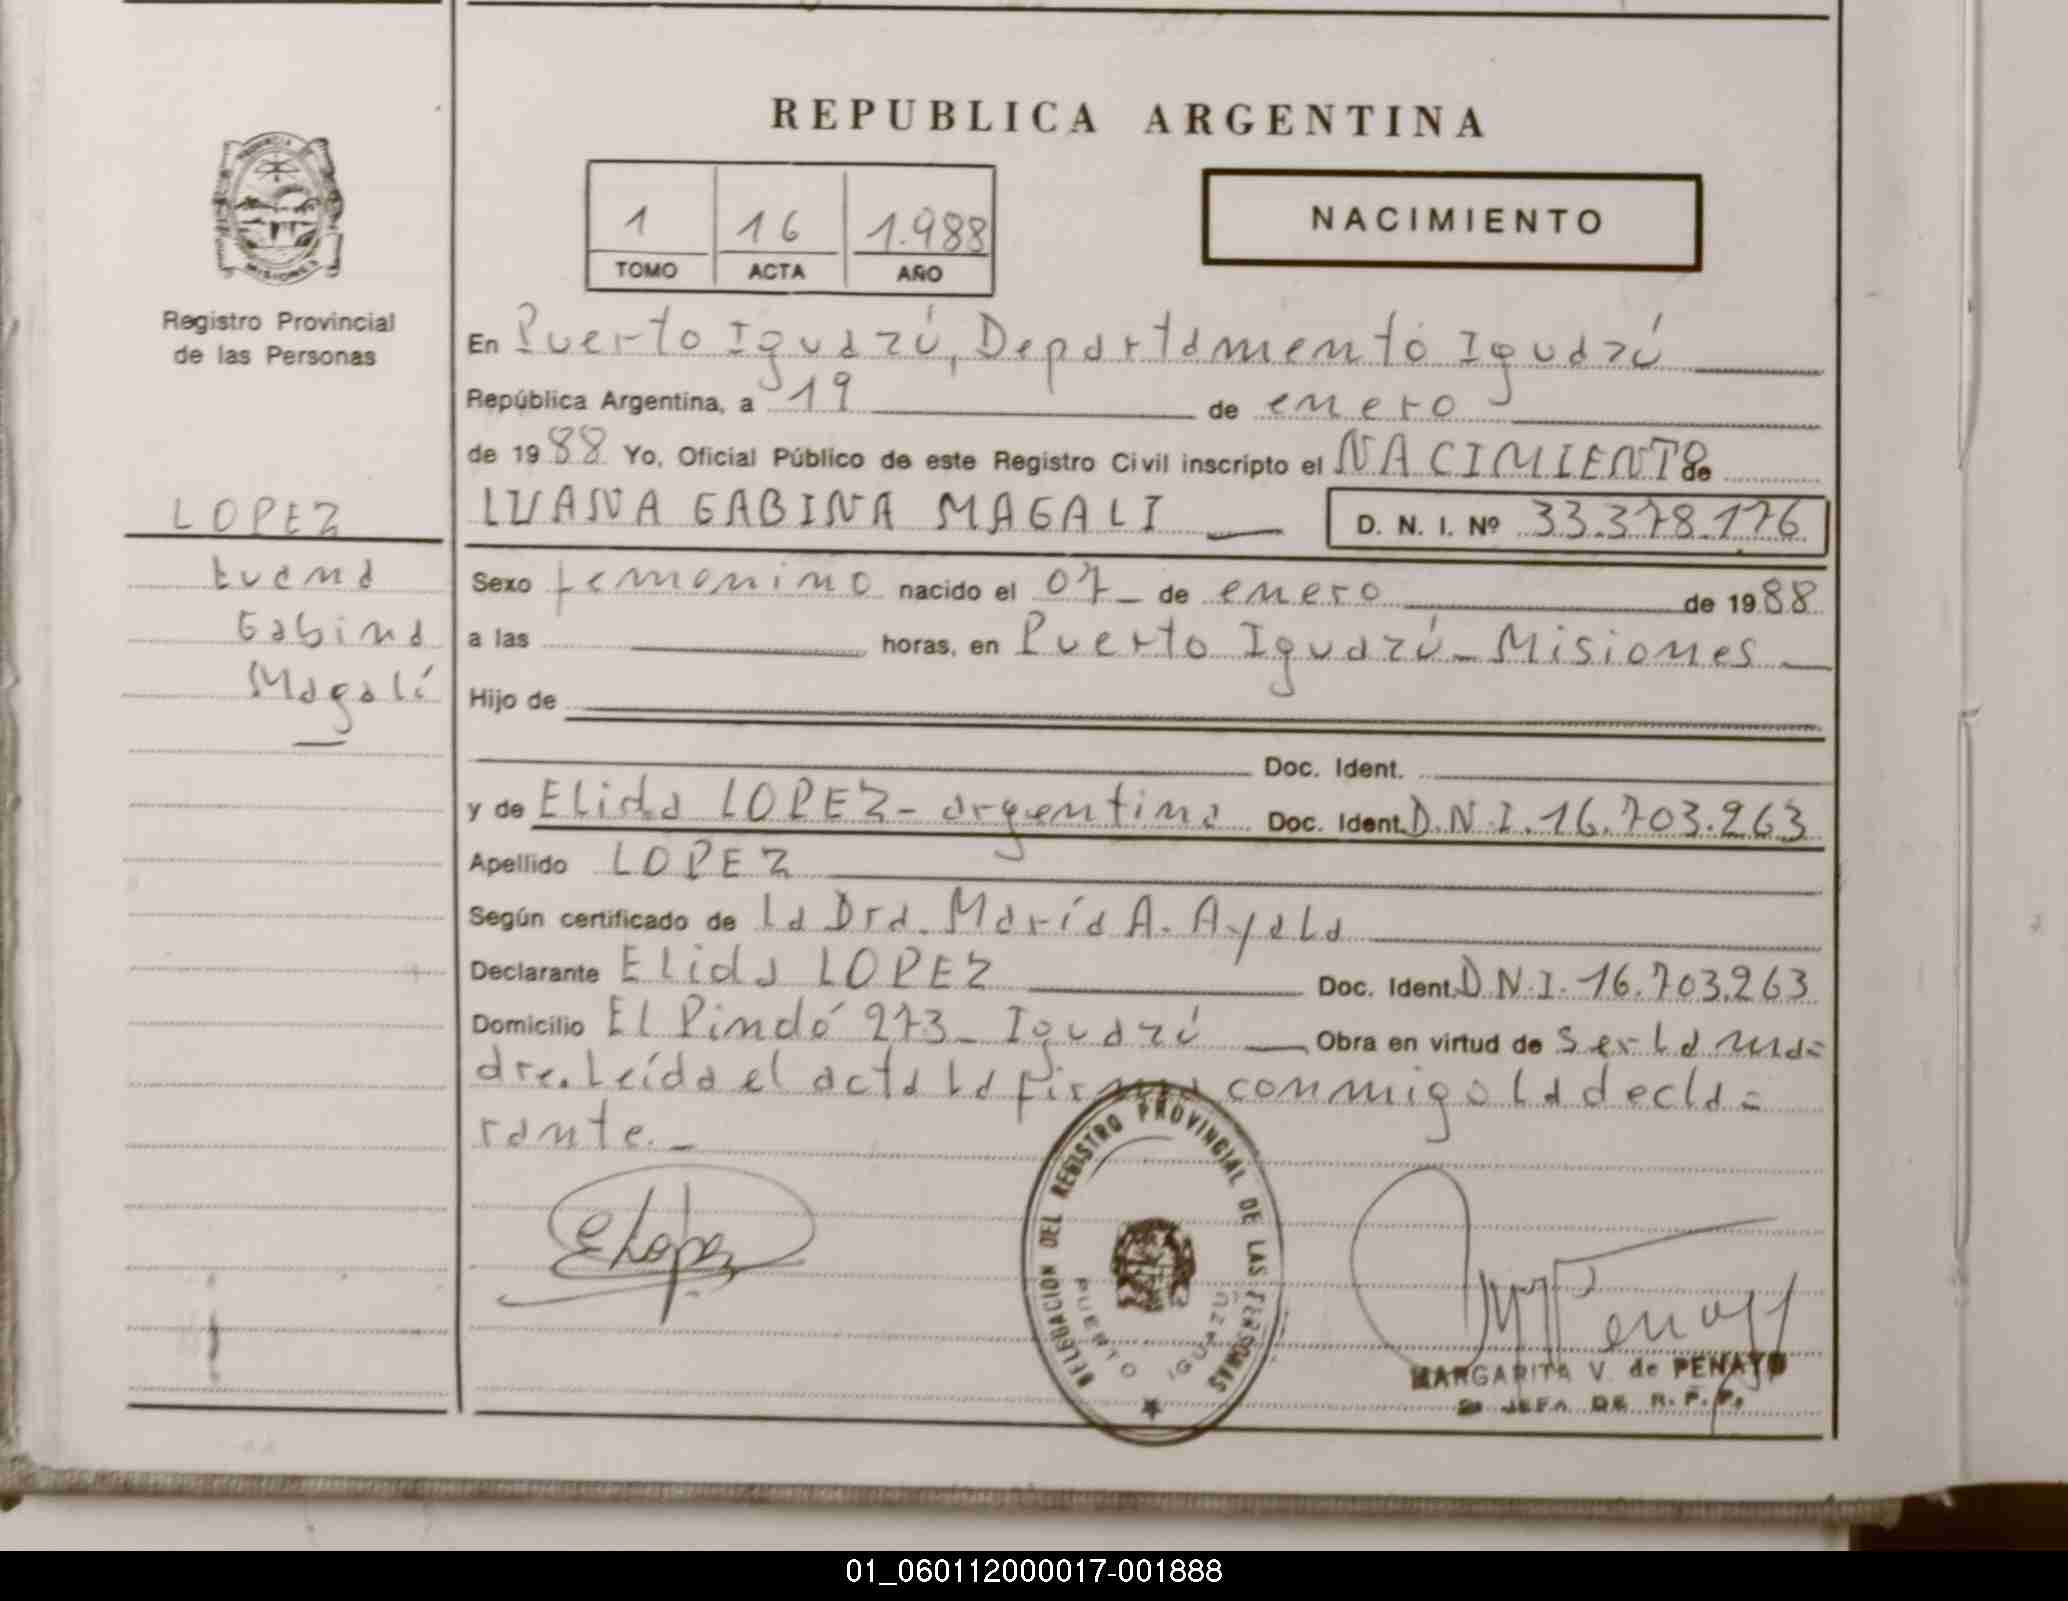 REPUBLICA ARGENTINA
PROVINCIA
MISIONES
Registro Provincial
de las Personas
1 16 1.988
TOMO ACTA AÑO
NACIMIENTO
En Puerto Iguazú, Departamento Iguazú
República Argentina, a 19 de enero
de 1988 Yo, Oficial Público de este Registro Civil inscripto el NACIMIENTO de
LUANA GABINA MAGALI D. N. I. Nº 33.378.176
LOPEZ
Luana
Gabina
Magalí
Sexo femenino nacido el 07 de enero de 1988
a las horas, en Puerto Iguazú - Misiones
Hijo de
Doc. Ident.
y de Elida LOPEZ - argentina Doc. Ident. D.N.I. 16.703.263
Apellido LOPEZ
Según certificado de la Dra. María A. Ayala
Declarante Elida LOPEZ Doc. Ident. D.N.I. 16.703.263
Domicilio El Pindó 273 - Iguazú Obra en virtud de ser la ma=
dre. Leída el acta la firma conmigo la decla=
rante. -
ELopez
DELEGACION DEL REGISTRO PROVINCIAL DE LAS PERSONAS
PUERTO IGUAZU
MARGARITA V. de PENAYO
JEFA DE R. P. P.
01_060112000017-001888